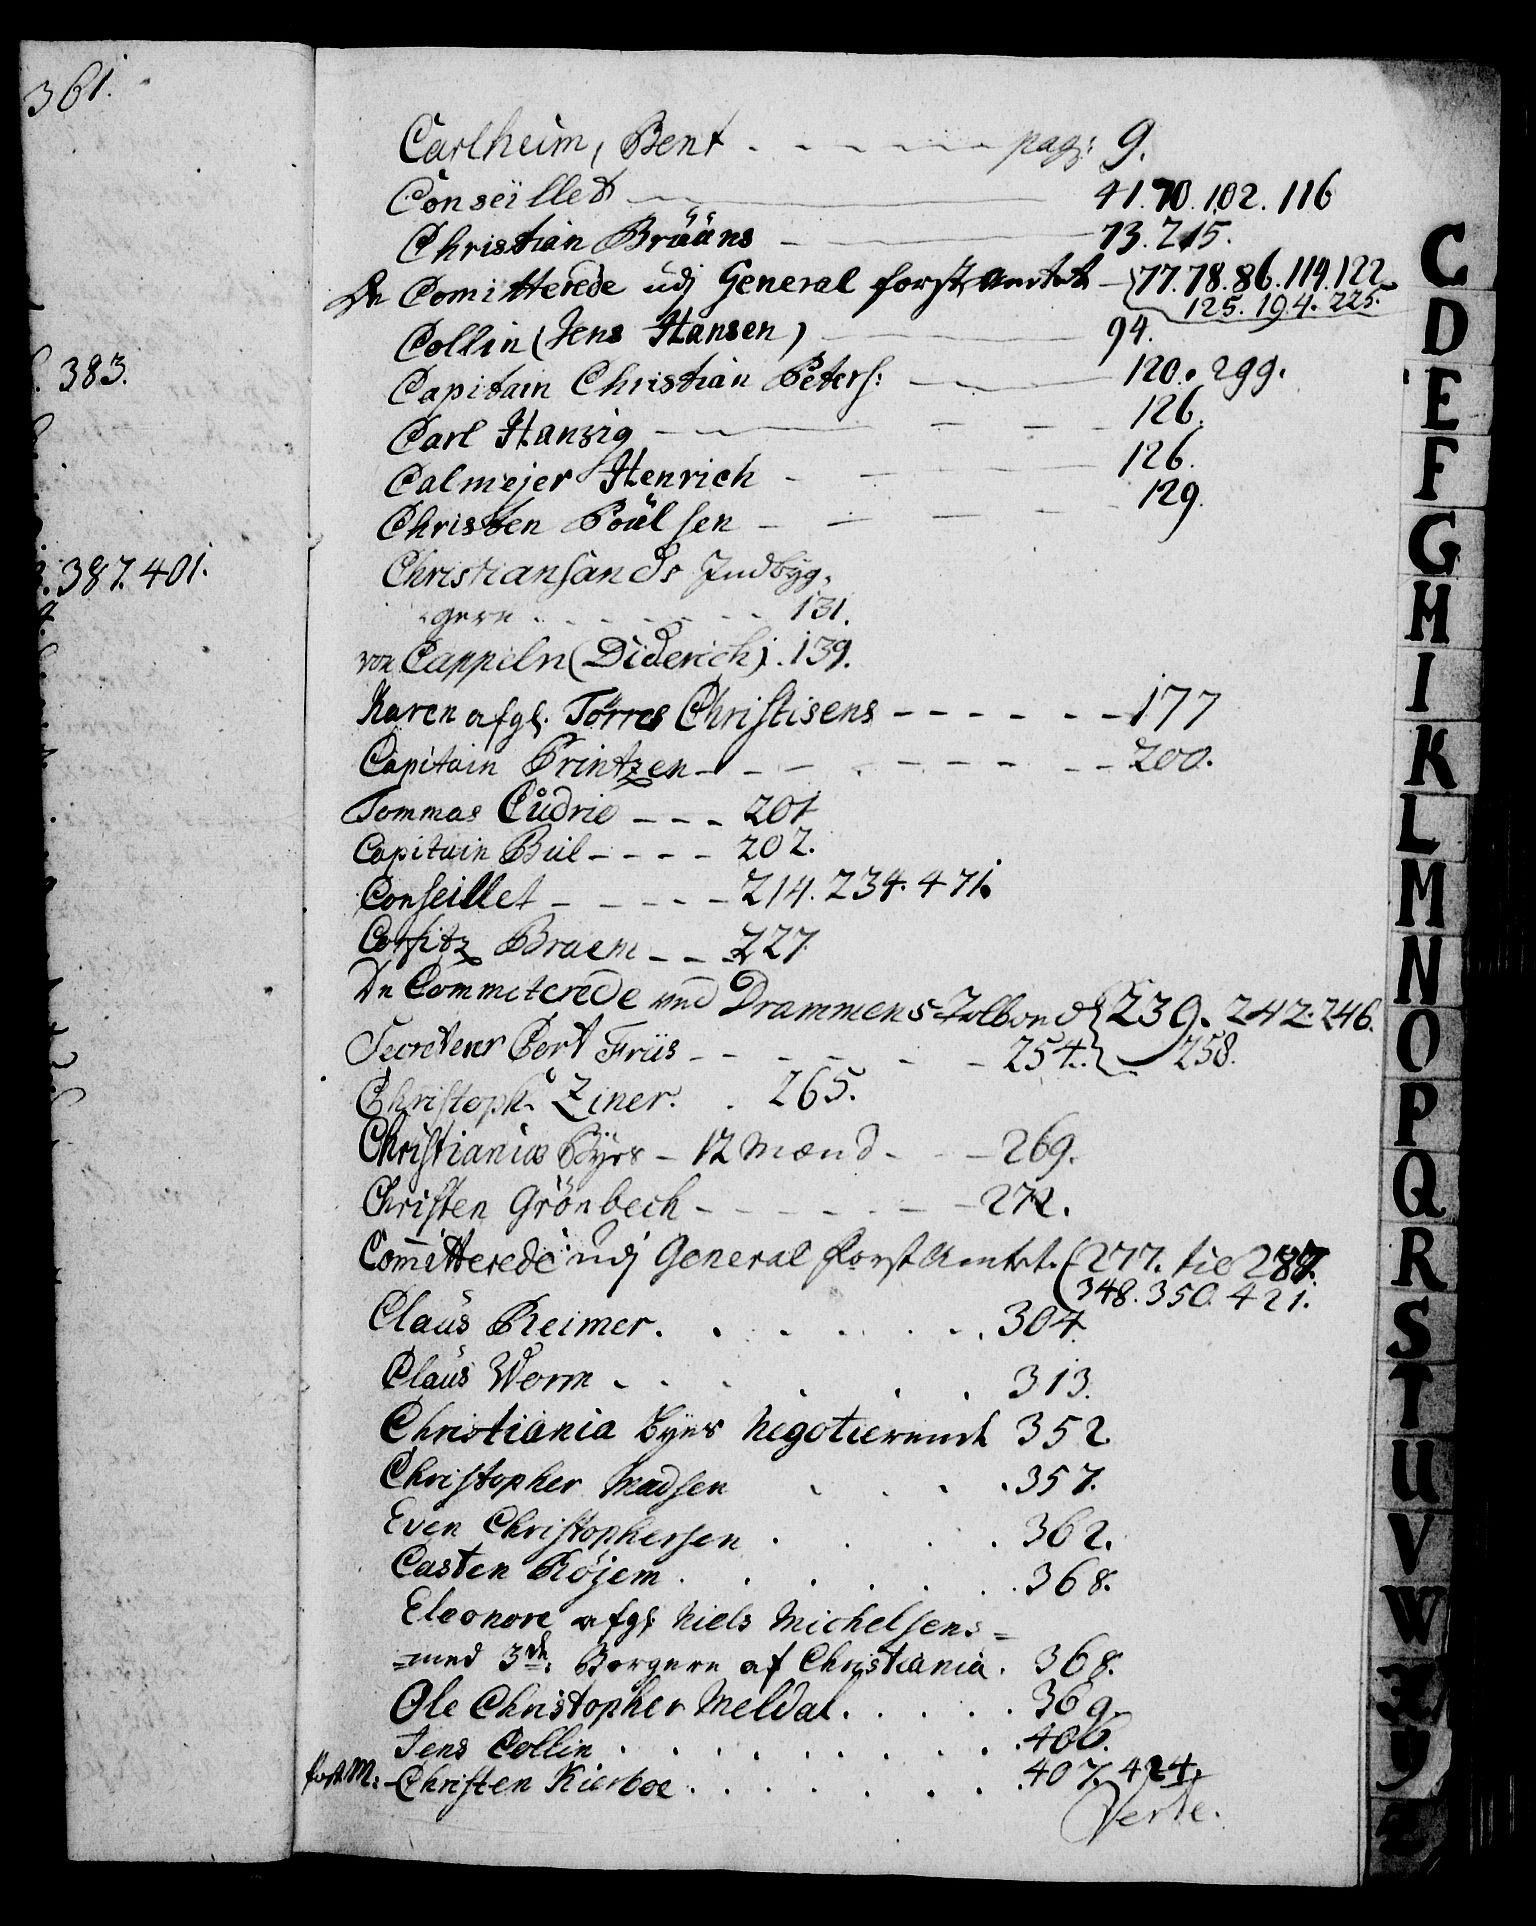 361.
383.
387. 401.
Carlheim, Bent - - - - - - pag: 9.
Conseillet - 41. 70. 102. 116
Christian Brüüns - 73. 215.
De Comitterede udj General forst Amtet - 77. 78. 86. 114. 122
125. 194. 225.
Collin (Jens Hansen) 94.
Capitain Christian Peters: 120. 299.
Carl Hansig - 126.
Calmejer Henrich - 126.
Christen Poülsen - 129.
Christiansands Indbyg-
gere - - - 131.
von Cappeln (Diderich). 139.
Karen afgl. Törres Christisens - - - - - - 177
Capitain Printzen - - - - - - 200.
Tommas Cudrio - - - 201
Capitain Bül - - - - 202.
Conseillet - - - - - 214. 234. 471.
Corfitz Braem - - 227
De Commeterede ved Drammens Tolboed 239. 242. 246.
Secreterer Cort Friis - - - 254. 258.
Christoph: Ziner. 265.
Christianiæ Byes - 12 Mænd - - - 269.
Christen Grönbech - - - - - - 272.
Comitterede udj General forst Amtet. 277. til 287.
348. 350. 421.
Claus Reimer. . . . . . . 304.
Claus Worm - - - . . . 313.
Christiania Byes Negotierende 352
Christopher Madsen . . . . 357.
Even Christophersen . . . . 362.
Casten Röjem . . . . . . 368.
Eleonore afgl. Niels Michelsens =
= med 3de. Borgere af Christiania. 368.
Ole Christopher Meldal. . . . . 369.
Jens Collin . . . . . . . . 406.
forst M: Christen Kierboe . . . . . . 407. 424.
Verte.
C
D
E
F
G
H
I
K
L
M
N
O
P
Q
R
S
T
U
V
W
X
Y
Z